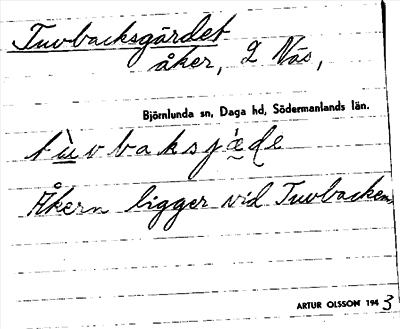 Tuvbacksgärdet
åker, 2 Näs,
Björnlunda sn, Daga hd, Södermanlands län.
Åkern ligger vid Tuvbacken
ARTUR OLSSON 1943